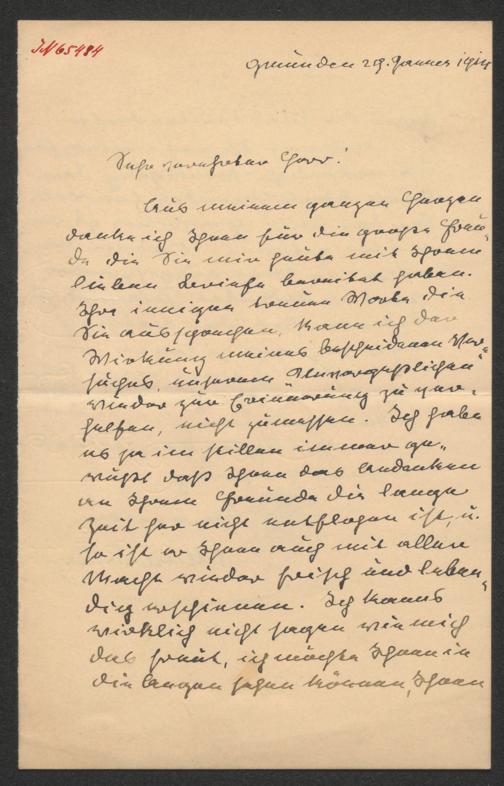 JN 65484
Gmünden 29. Jänner 1914
Sehr verehrter Herr!
Aus meinem ganzen Herzen
danke ich Ihnen für die große Freu-
de die Sie mir heute mit Ihrem
lieben Briefe bereitet haben.
Ihre innigen treuen Worte die
Sie aussprechen, kann ich der
Wirkung meines bescheidenen Ver-
suches, unserem Unvergeßlichen
wieder zur Erinnerung zu ver-
helfen, nicht zumessen. Ich habe
es ja im stillen immer ge-
wußt daß Ihnen das Andenken
an Ihren Freunde die lange
Zeit her nicht entflogen ist, u.
so ist er Ihnen auch mit aller
Macht wieder frisch und leben-
dig erschienen. Ich kanns
wirklich nicht sagen wie mich
das freut, ich möchte Ihnen in
die Augen sehen können, Ihnen